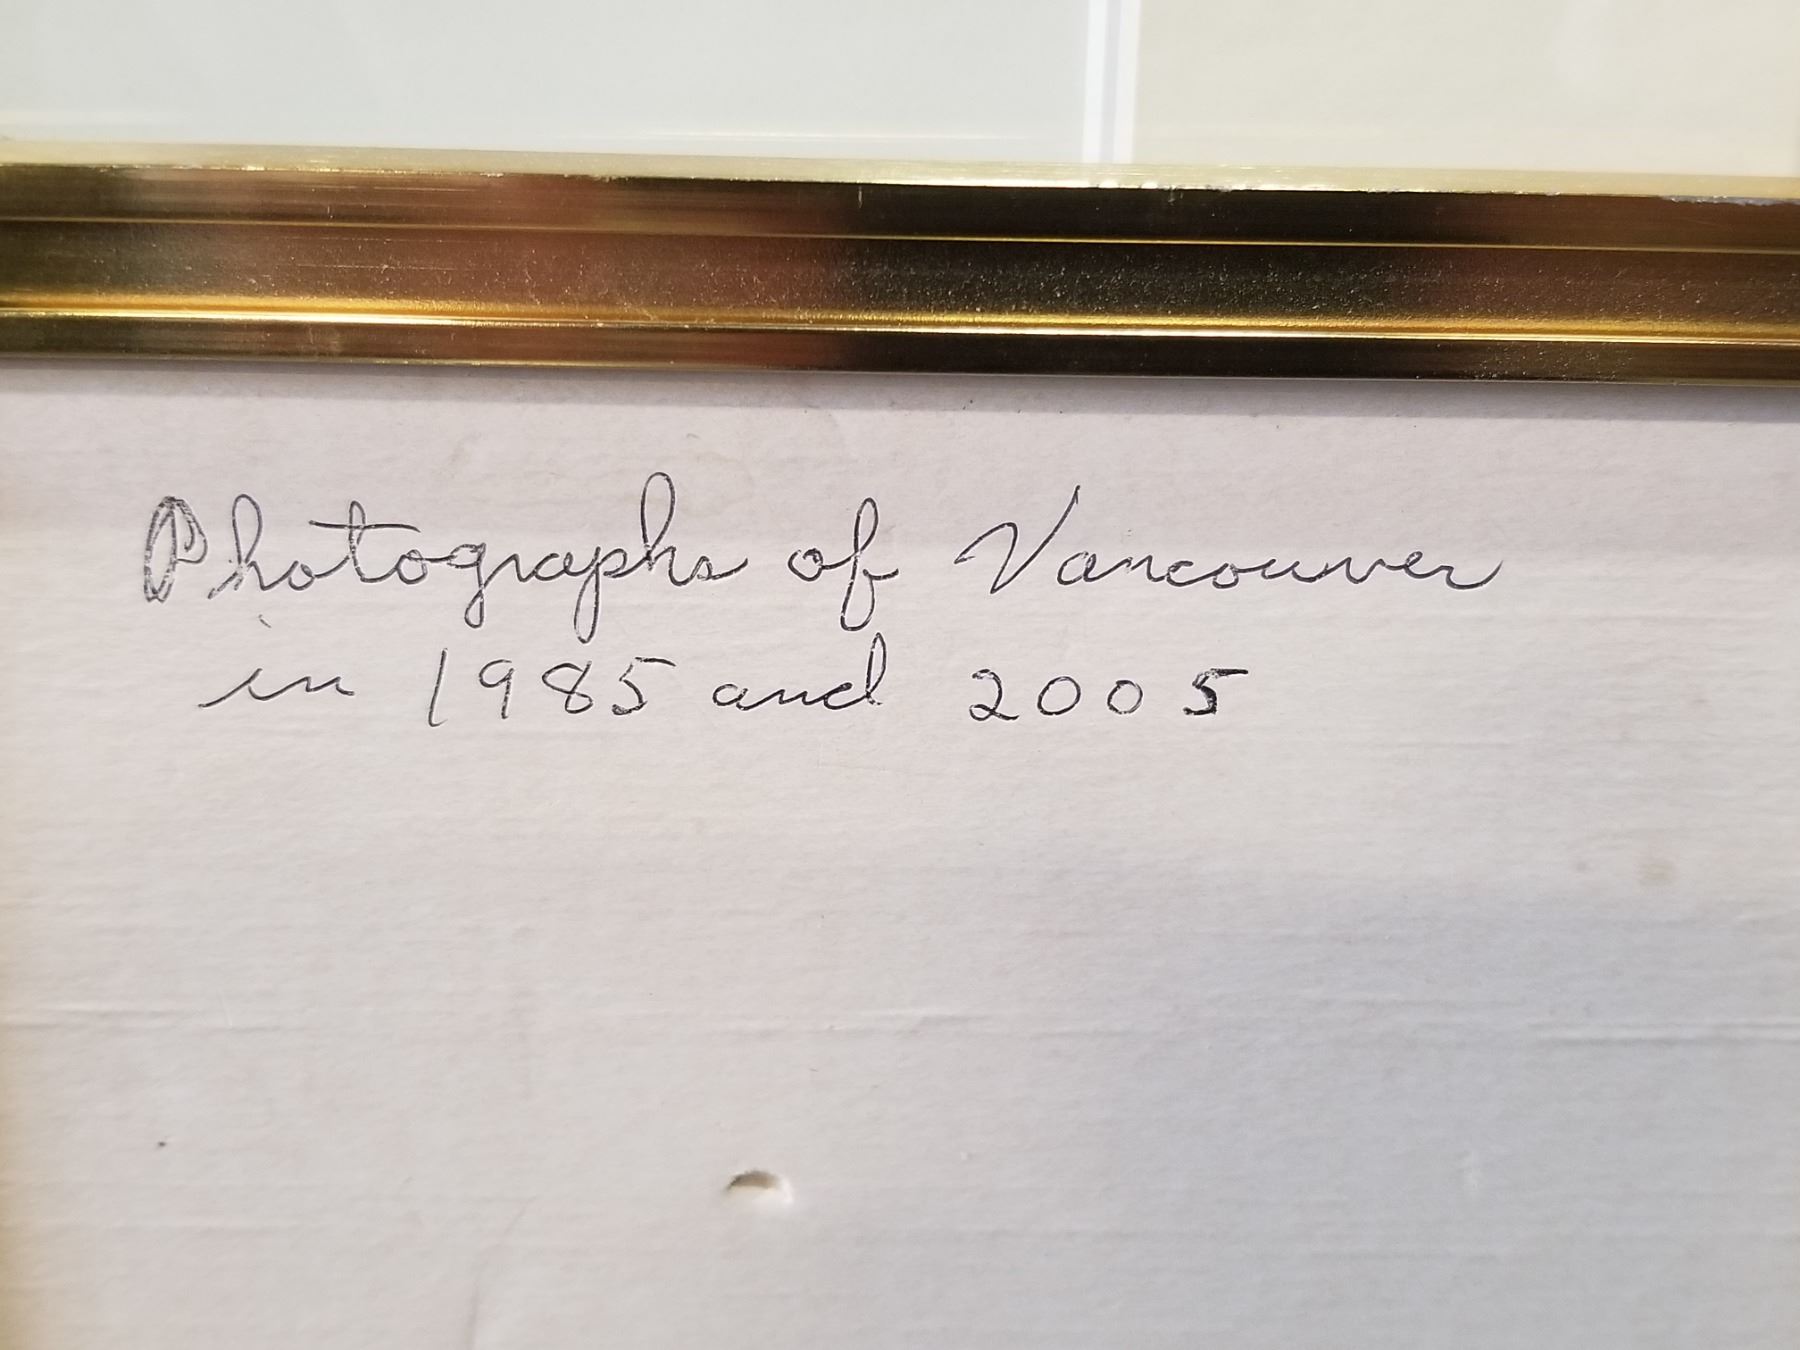 Photographs of Vancouver
in 1985 and 2005